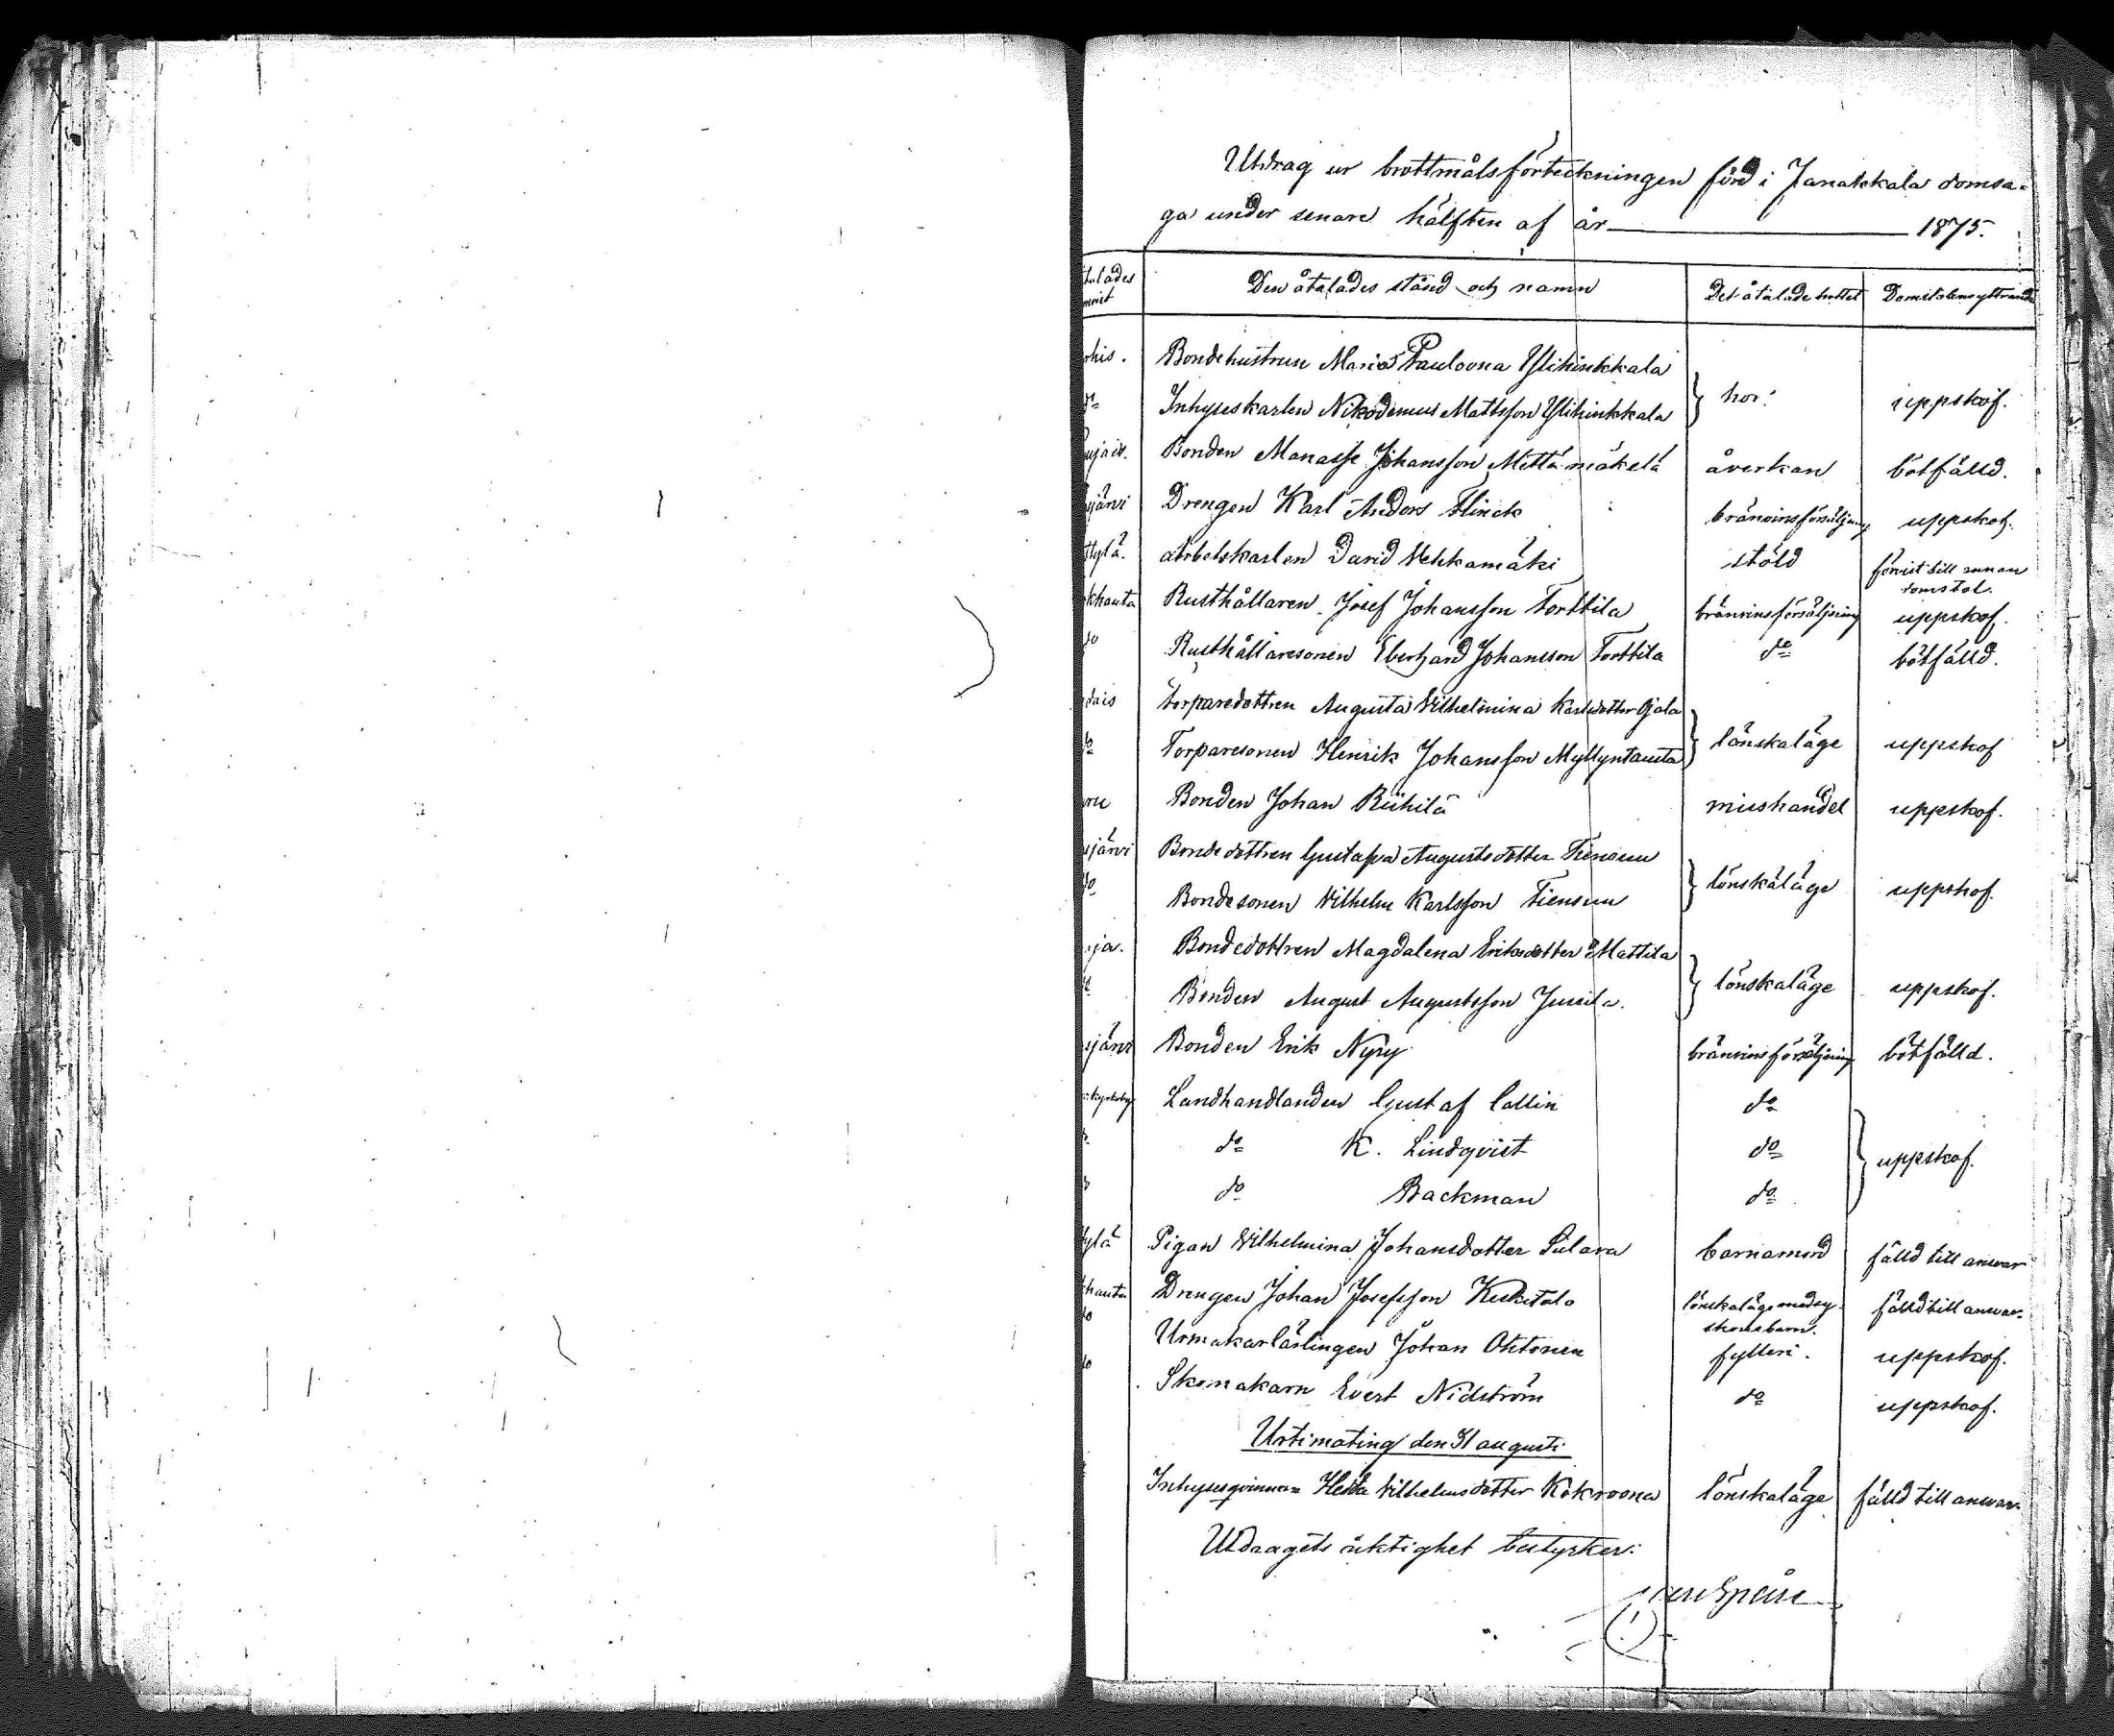 Utdrag ur brottmålsförteckningen förd i Janakkala domsa-
ga under senare hälften af år 1875.
Den åtalades stånd och namn Det åtalade brottet Domstolens yttrande
Bondehustrun Maria Paulovna Ylihinkkala
Inhyseskarlen Nikodemus Mattsson Ylihinkkala } hor. uppskof.
Bonden Manasse Johansson Mettämäkelä åverkan bötfälld.
järvi Drengen Karl Anders Flinck bränvinsförsäljning uppskof.
Arbetskarlen David Vehkamäki stöld förvist till annan
domstol.
khauta Rusthållaren Josef Johansson Torttila bränvinsförsäljning uppskof.
do Rusthållaresonen Eberhard Johansson Torttila do bötfälld.
Torparedottren Augusta Vilhelmina Karlsdotter Ojala
Torparesonen Henrik Johansson Myllyntausta } lönskaläge uppskof
Bonden Johan Riihilä mishandel uppskof.
järvi Bondedottren Gustafva Augustsdotter Tiensuu
do Bondesonen Vilhelm Karlsson Tiensuu } lönskaläge uppskof.
Bondedottren Magdalena Eriksdotter Mattila
Bonden August Augustsson Jussila. } lönskaläge uppskof.
Bonden Erik Nyry bränvinsförsäljning bötfälld.
Landhandlanden Gustaf Collin do
do K. Lindqvist do } uppskof.
do Backman do
Pigan Vilhelmina Johansdotter barnamord fälld till answar
Drengen Johan Josefsson Keskitalo lönskaläge med sy-
skonebarn. fälld till answar.
Urmakarlärlingen Johan Ohtonen fylleri. uppskof.
Skomakarn Evert Nidström do uppskof.
Urtimating den 31 augusti
Inhysesqvinnan Hedda Vilhelmsdotter lönskaläge fälld till answar.
Utdragets riktighet bestyrker: